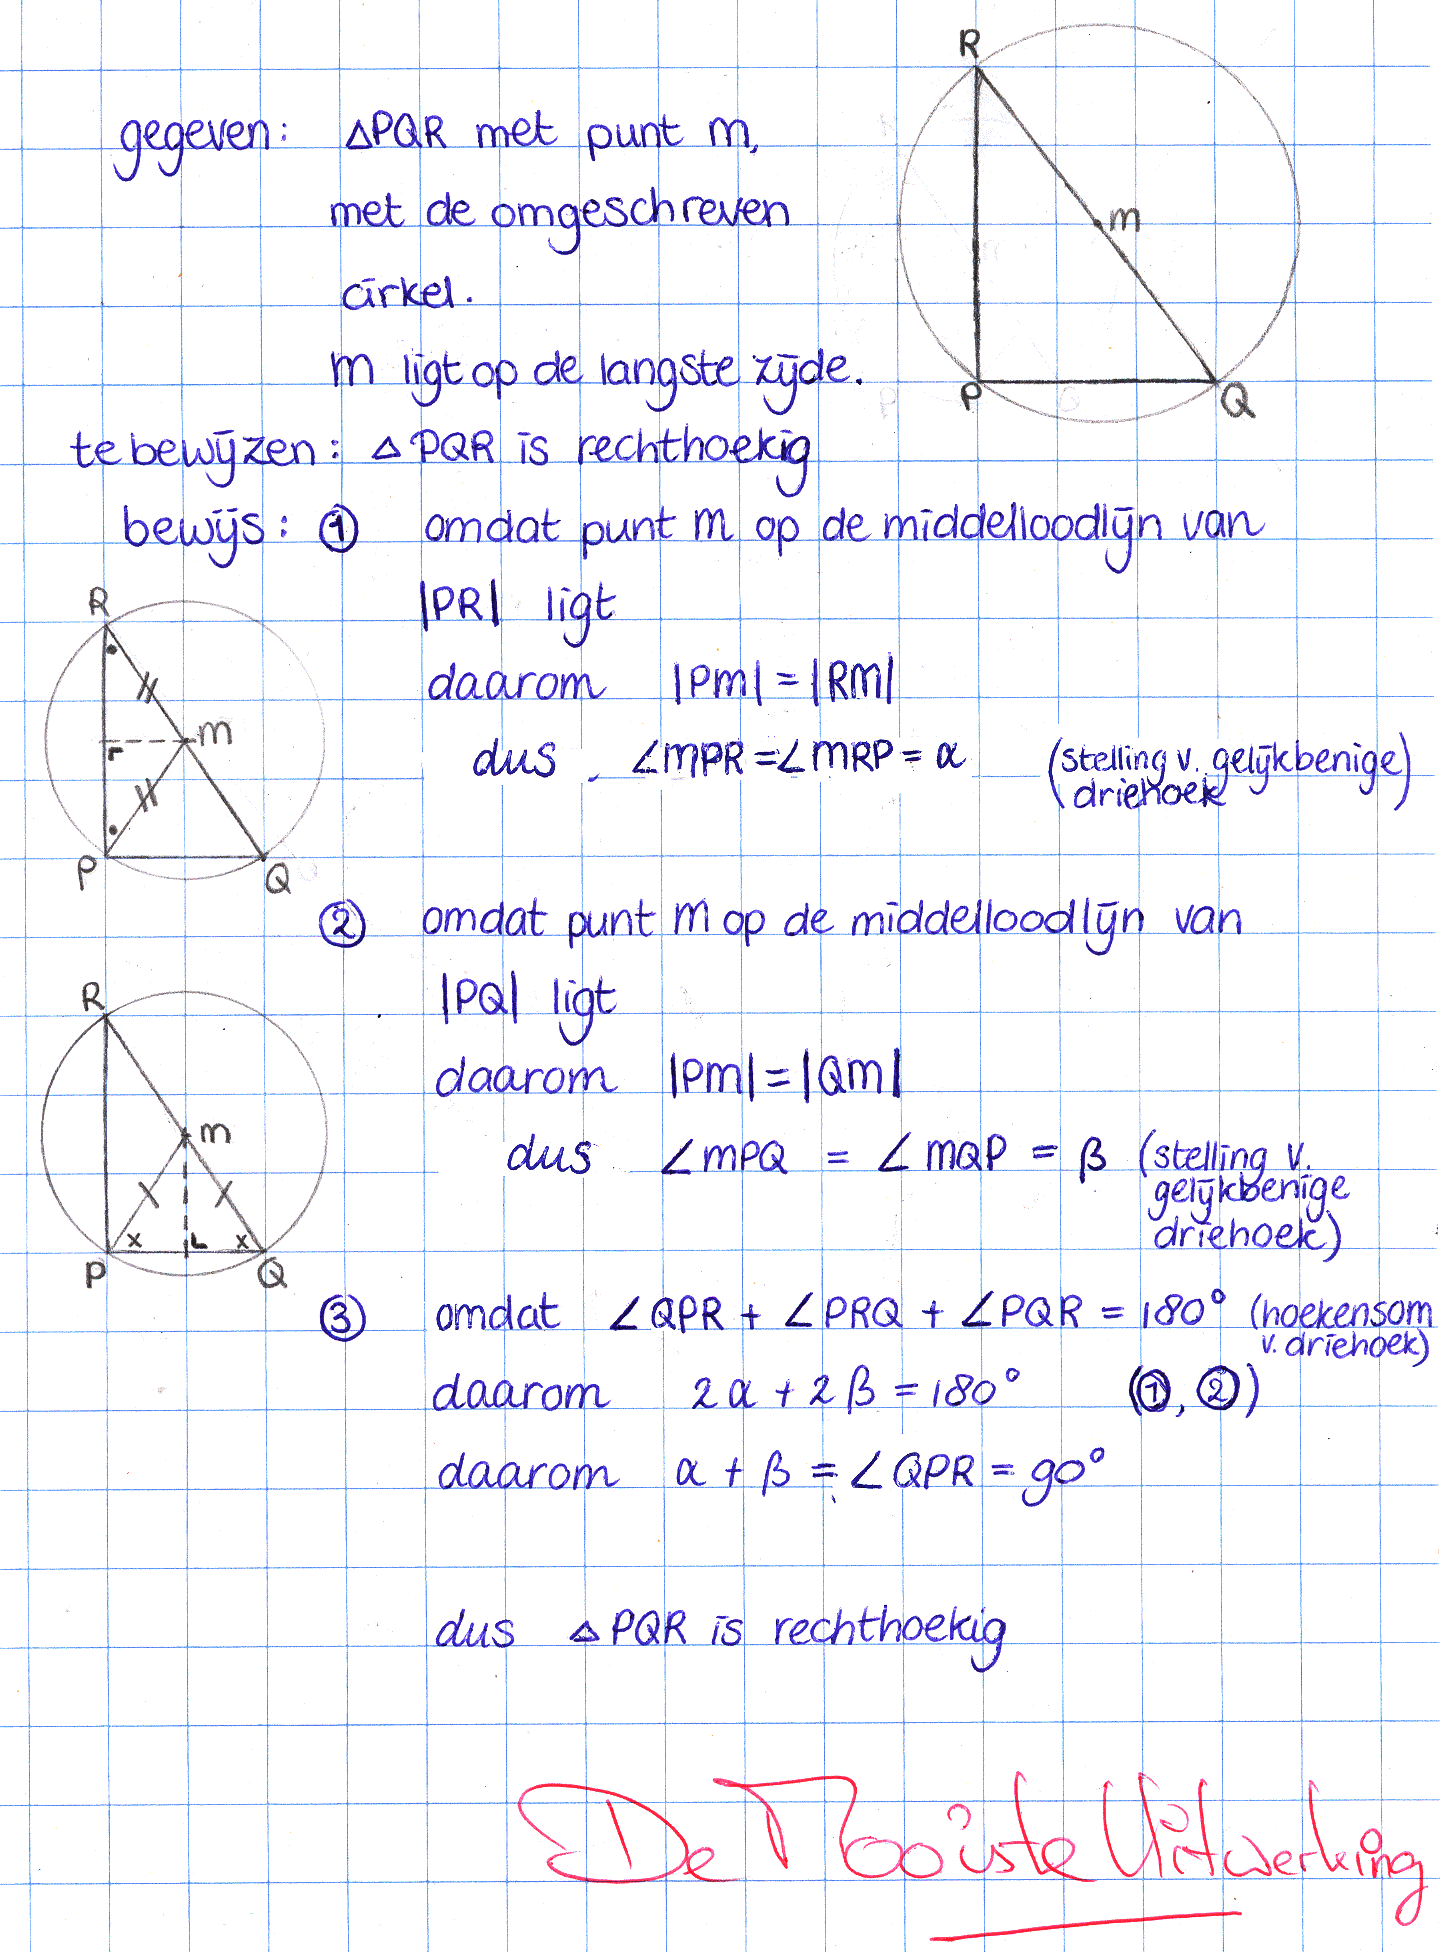 R
gegeven: △PQR met punt m,
met de omgeschreven
m
cirkel.
m ligt op de langste zijde.
P
Q
te bewijzen: △PQR is rechthoekig
bewijs: ① omdat punt m op de middelloodlijn van
R
|PR| ligt
daarom |Pm| = |Rm|
m
dus ∠mPR = ∠mRP = α (stelling v. gelijkbenige
driehoek)
P
Q
② omdat punt m op de middelloodlijn van
R
|PQ| ligt
daarom |Pm| = |Qm|
m
dus ∠mPQ = ∠mQP = β (stelling v.
gelijkbenige
driehoek)
x x
P
Q
③ omdat ∠QPR + ∠PRQ + ∠PQR = 180° (hoekensom
v. driehoek)
daarom 2α + 2β = 180° (①, ②)
daarom α + β = ∠QPR = 90°
dus △PQR is rechthoekig
De Mooiste Uitwerking